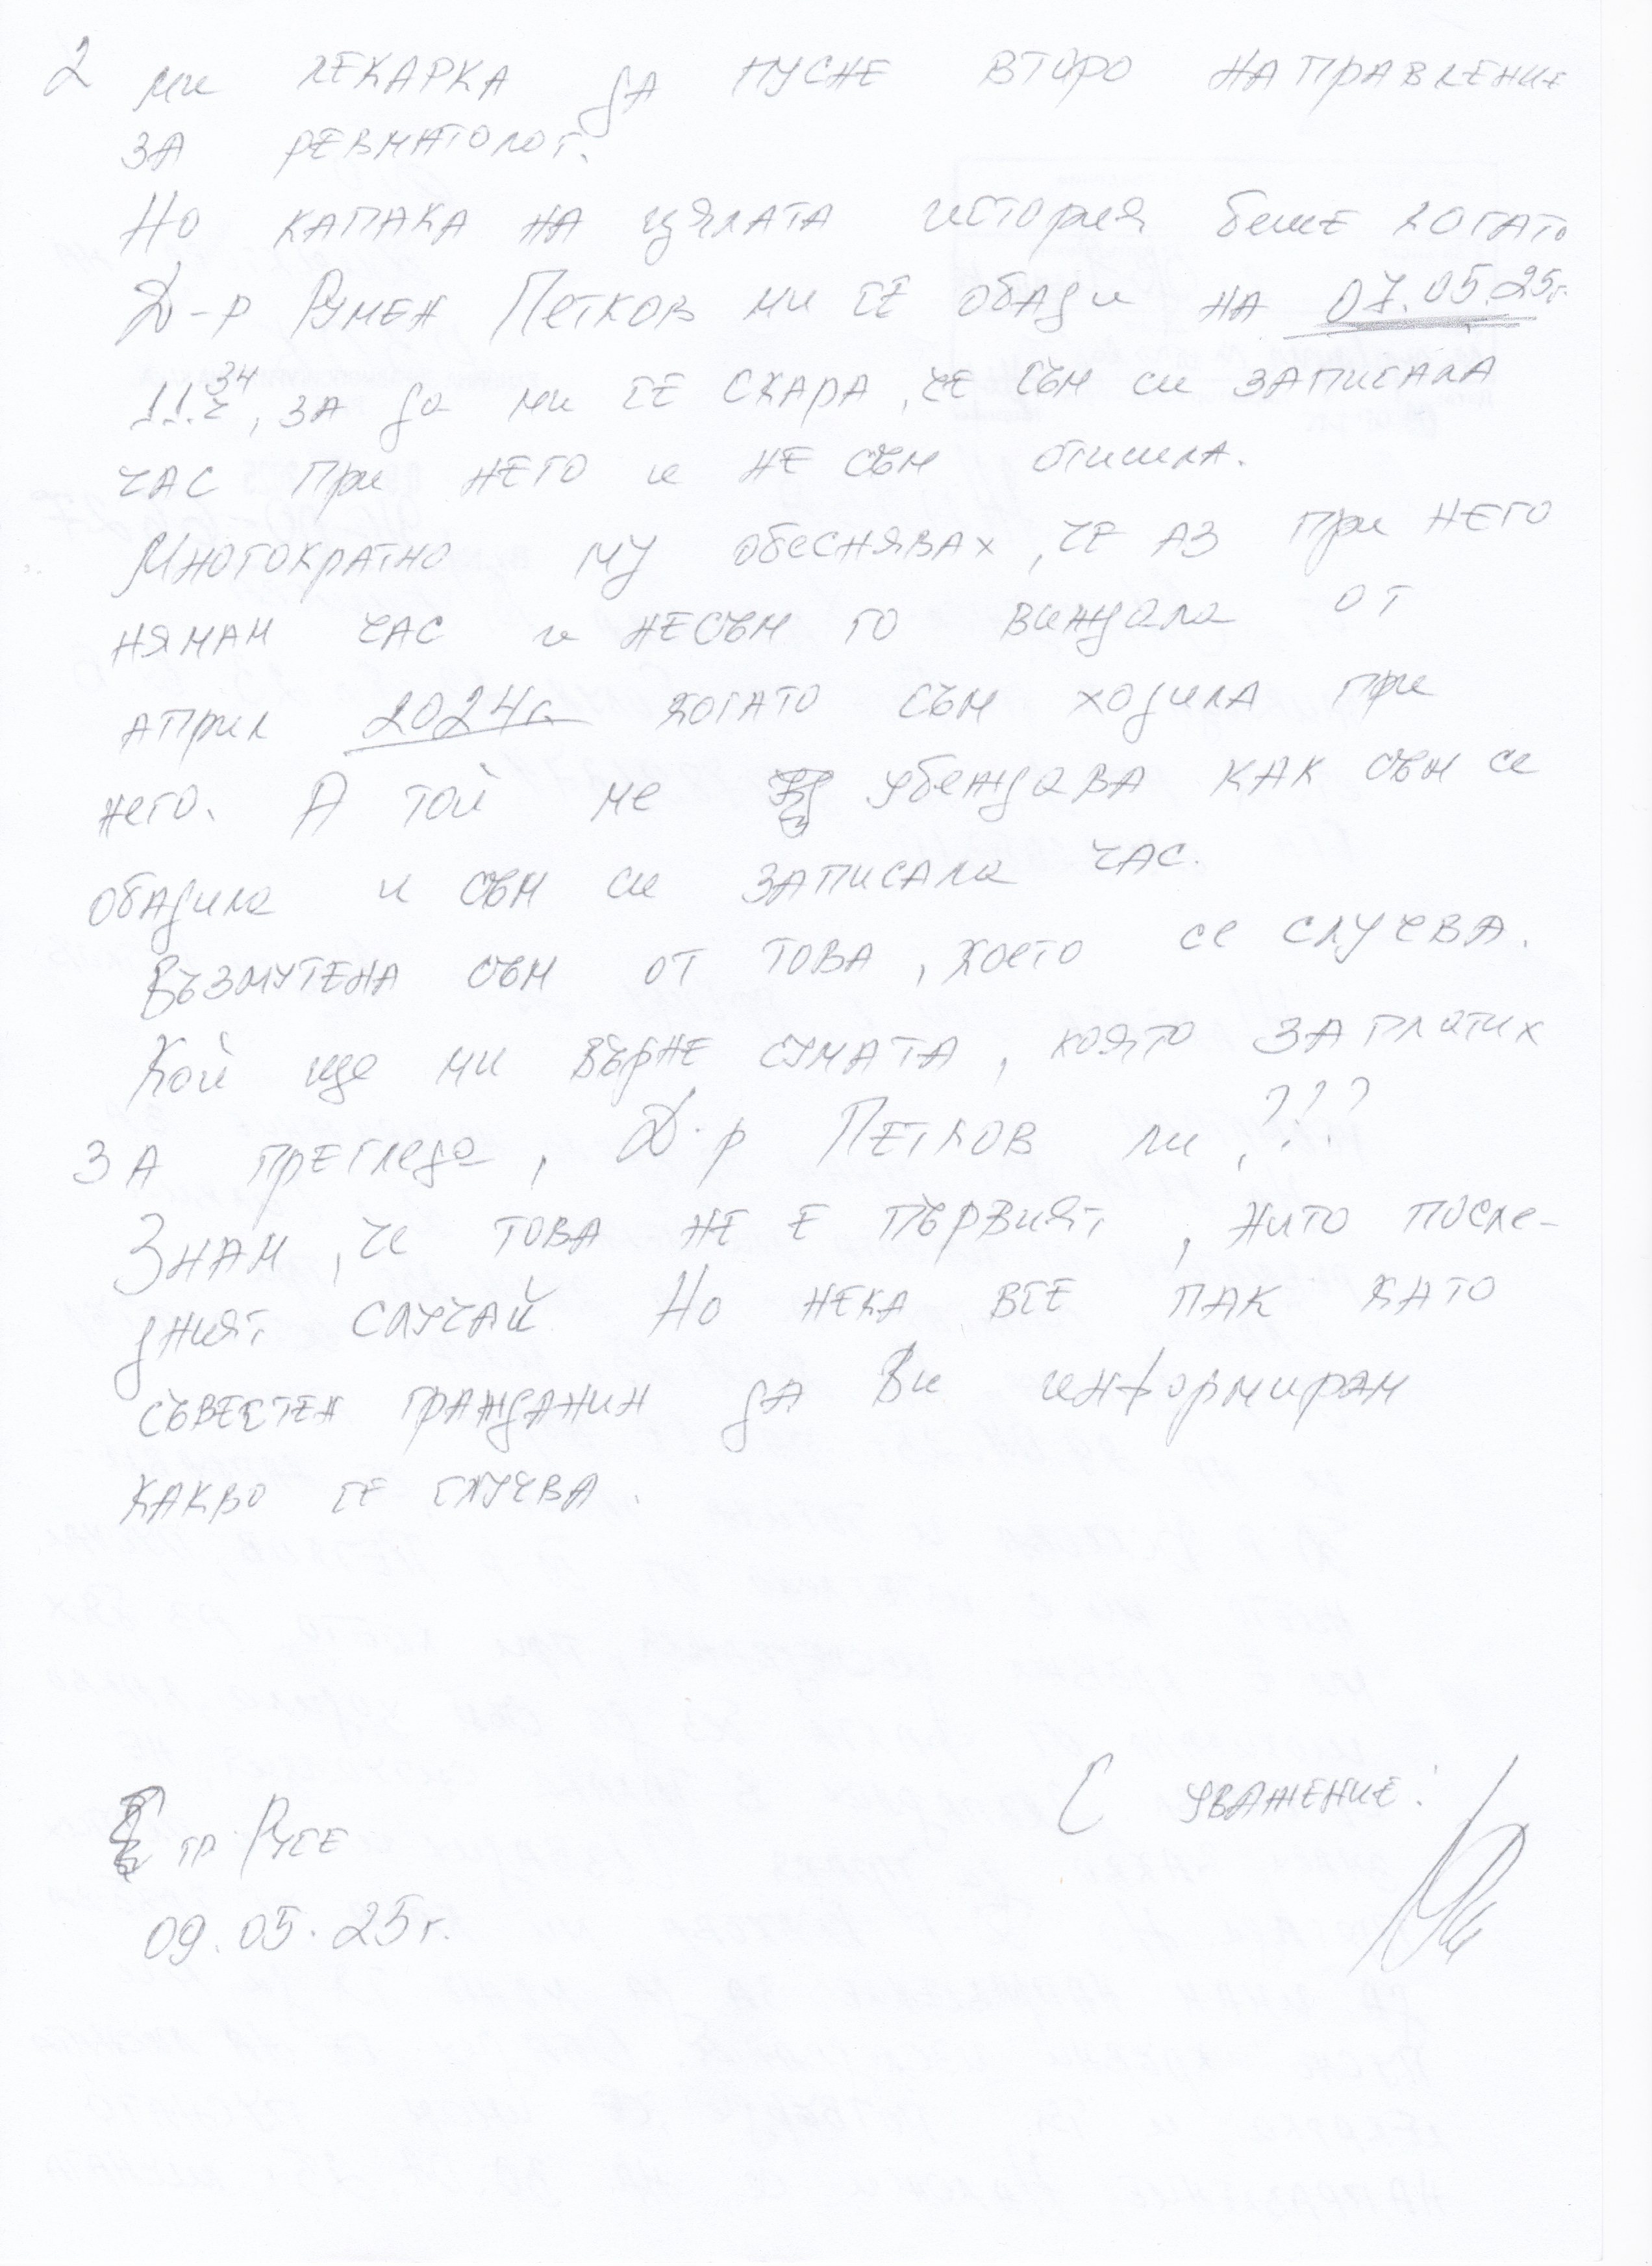 2 ми лекарка да пусне второ направление
за ревматолог.
Но капака на цялата история беше когато
Д-р Румен Петков ми се обади на 07.05.25г.
11:34ч, за да ми се скара, че съм си записала
час при него и не съм отишла.
Многократно му обеснявах, че аз при него
нямам час и несъм го виждала от
април 2024г. когато съм ходила при
него. А той ме убеждава как съм се
обадила и съм си записала час.
Възмутена съм от това, което се случва.
Кой ще ми върне сумата, която заплатих
за прегледа, Д-р Петков ли, ???
Знам, че това не е първият, нито после-
дният случай Но нека все пак като
съвестен гражданин да Ви информирам
какво се случва.
С уважение:
гр. Русе
09.05.25г.